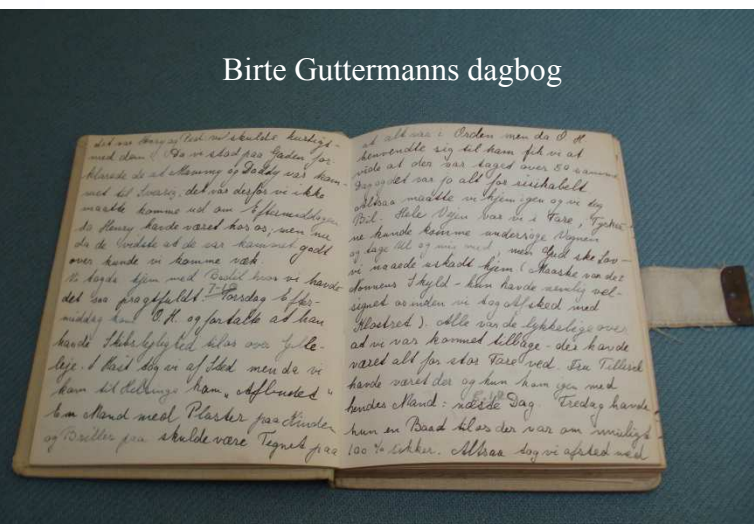 Birte Guttermanns dagbog
det var Henry og vi skulde hurtigt
med dem. Da vi stod paa Gaden for-
klarede de at Mammy og Daddy var kom-
met til Sverig, det var derfor vi ikke
maatte komme ud om Eftermiddagen
da Henry havde været hos os, men nu
da de vidste at de var kommet godt
over kunde vi komme væk.
Vi tog hjem med Bodil hvor vi havde
det saa pragtfuldt. Torsdag Efter-
middag kom O.H. og fortalte at han
havde Skibslejlighed til os over Gille-
leje. I Hast tog vi af Sted men da vi
kom til Helsinge kom "Afbudet"
Em Mand med Plaster paa Kinden
og Briller paa skulde være Tegnet paa
at alt var i Orden men da O.H.
henvendte sig til ham fik vi at
vide at der var taget over 80 samme
Dag og det var jo alt for risikabelt
Altsaa maatte vi hjem igen og vi tog
Bil. Hele Vejen var vi i Fare, Tysker-
ne kunde komme undersøge Vognen
og tage det og mig med, men Gud ske Lov
vi naaede uskadt hjem (Maaske var det
Nonnens Skyld - hun havde nemlig vel-
signet os inden vi tog Afsked med
Klostret). Alle var de lykkelige over
at vi var kommet tilbage - der havde
været alt for stor Fare ved. Fru Tillisch
havde været der og hun kom igen med
hendes Mand: næste Dag. Fredag havde
hun en Baad til os der var om muligt
100 % sikker. Altsaa tog vi afsted med